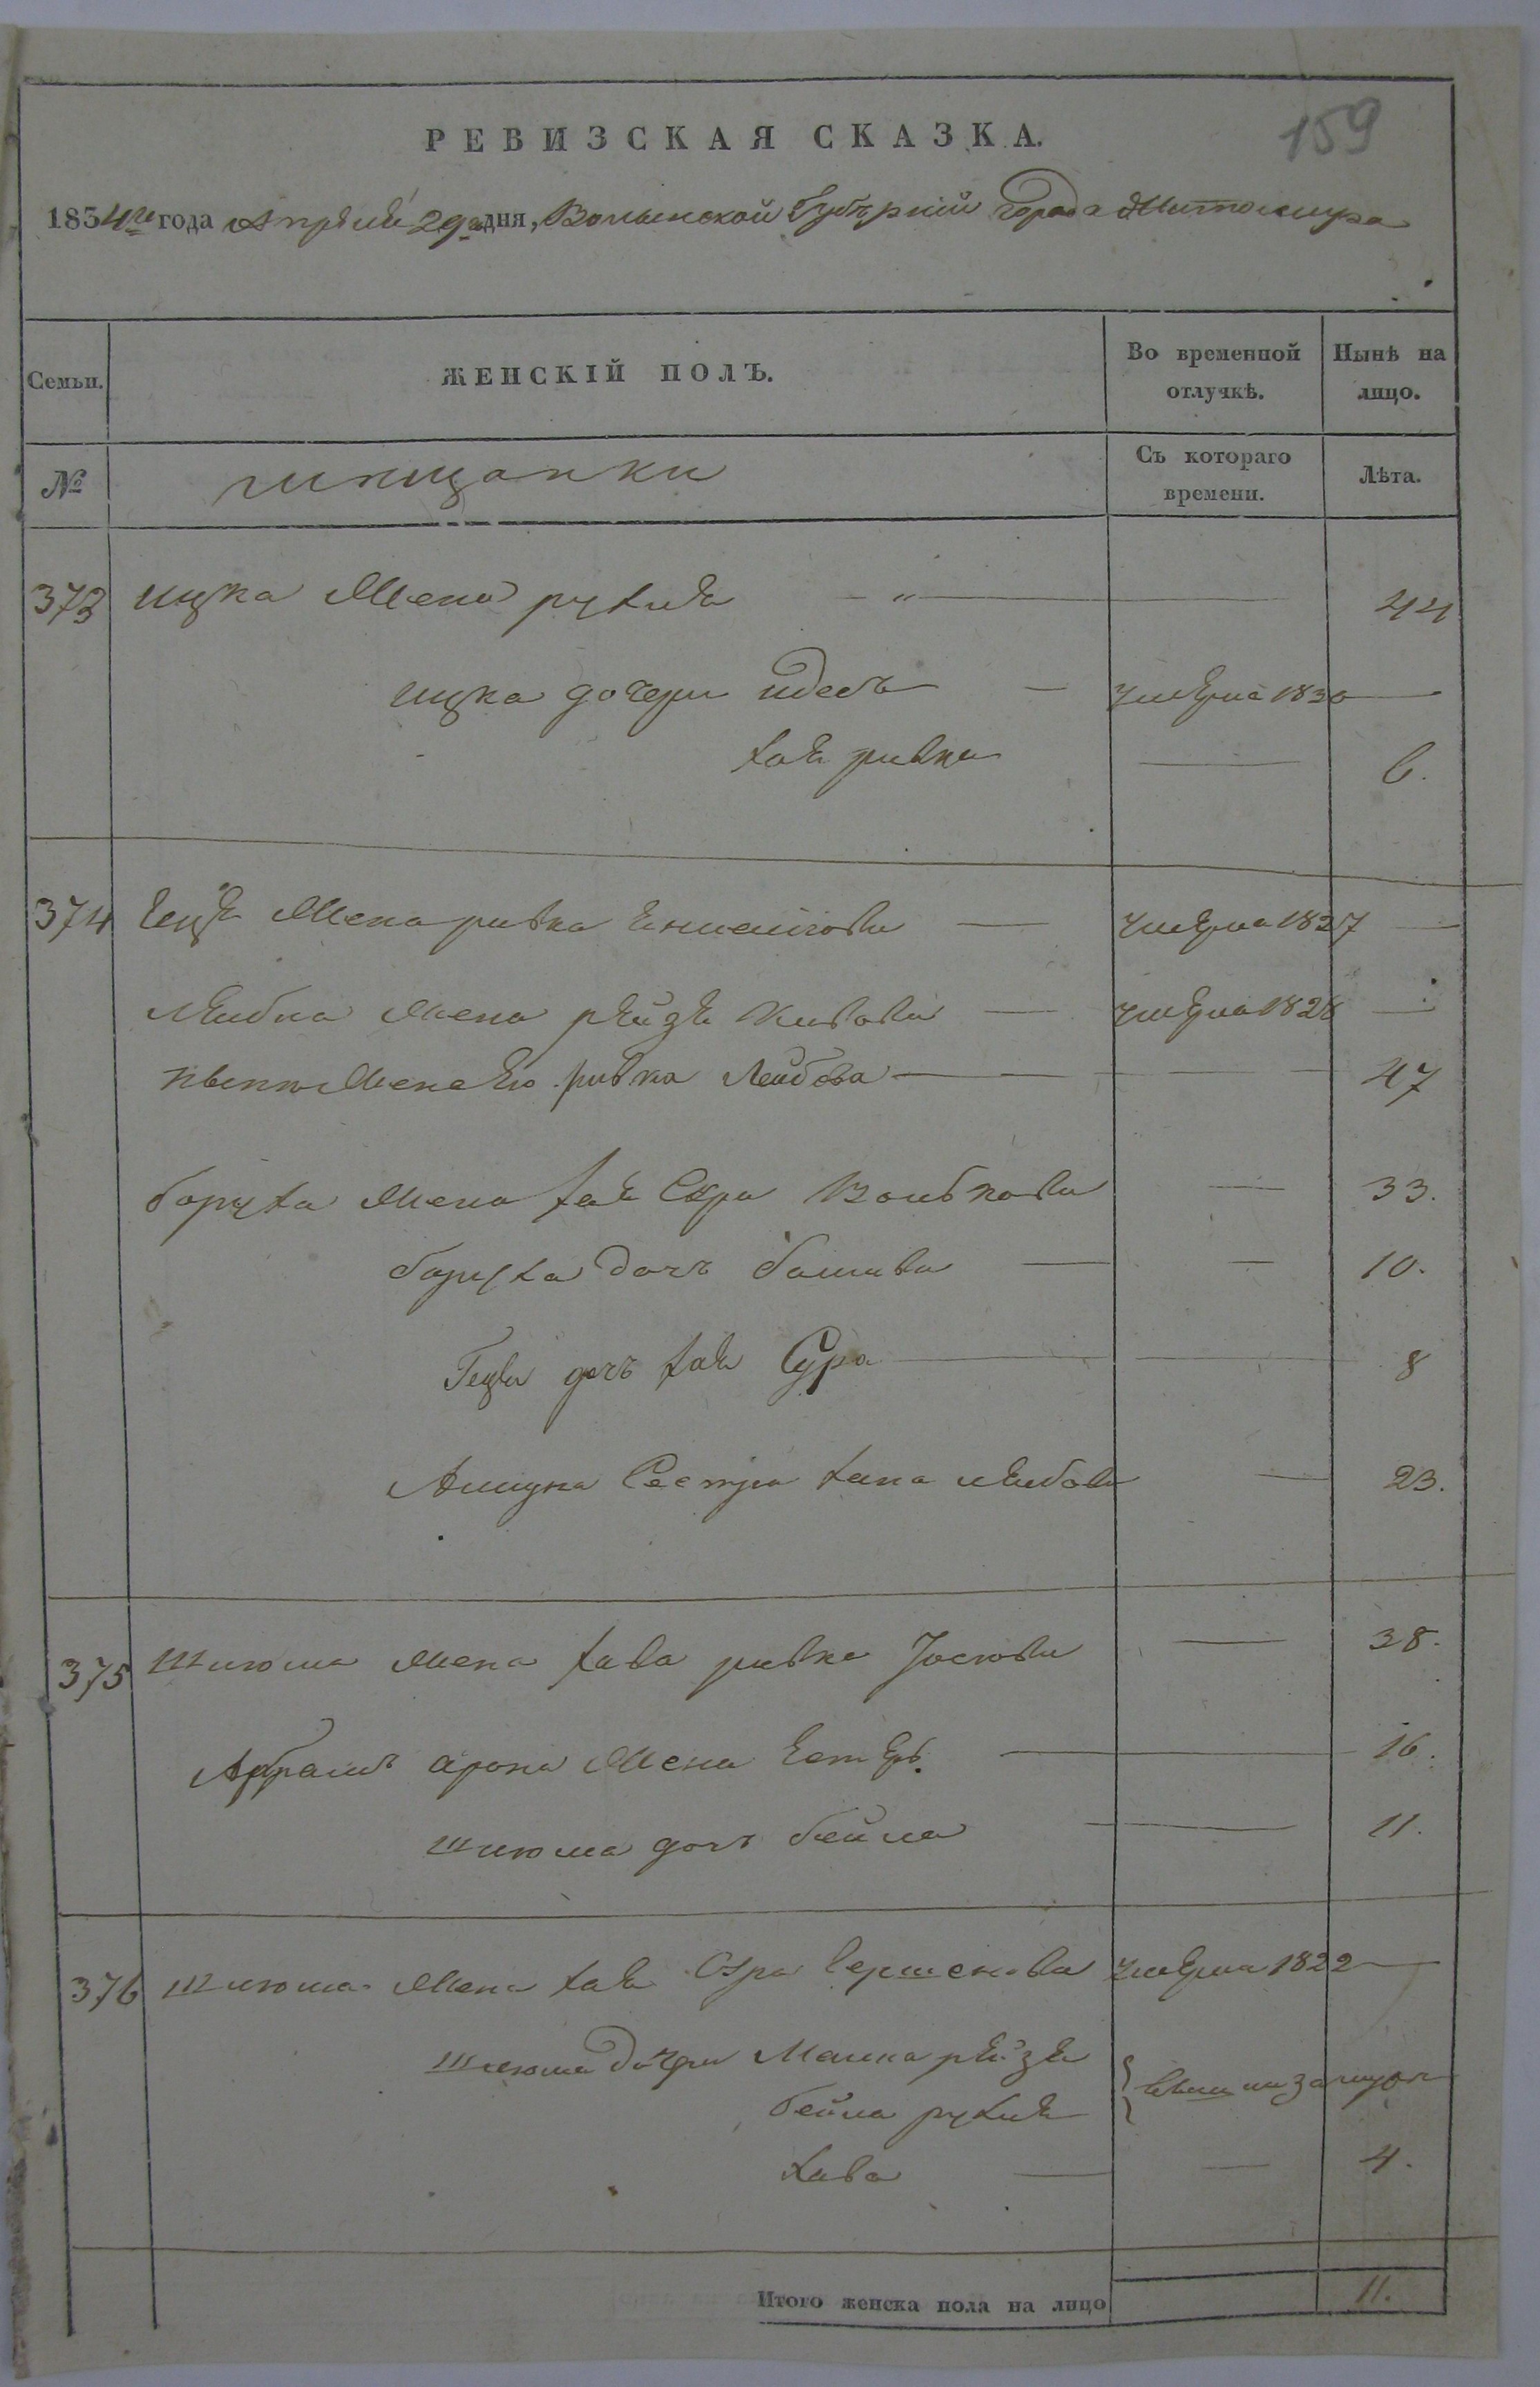 159
РЕВИЗСКАЯ СКАЗКА.
1834го года Апреля 29го дня, Волынской Губерніи города Житомира
Семьи. ЖЕНСКІЙ ПОЛЪ. Во временной отлучкѣ. Нынѣ на лицо.
№ мещанки Съ котораго времени. Лѣта.
373 ицка Жена рухля — " — 44
ицка дочери идесъ — умерла 1830 —
хая ривка — 6.
374 Жена ривка — умерла 1827 —
Лейбы жена рейзя — умерла 1828 —
Жена его ривка Лейбова — 47
боруха жена хая Сура Волькова — 33.
боруха дочь — 10.
дочь хая Сура — 8
Сестра хана лейбова — 23.
375 шлюма жена хава ривка Іоскова — 38.
Абрамъ арона жена естеръ. — 16.
шлюма дочь бейла — 11.
376 шлюма жена хая Сура умерла 1822 —
шлюма дочери рейзя
бейла рухля } замужъ
хава — 4.
Итого женска пола на лицо 11.